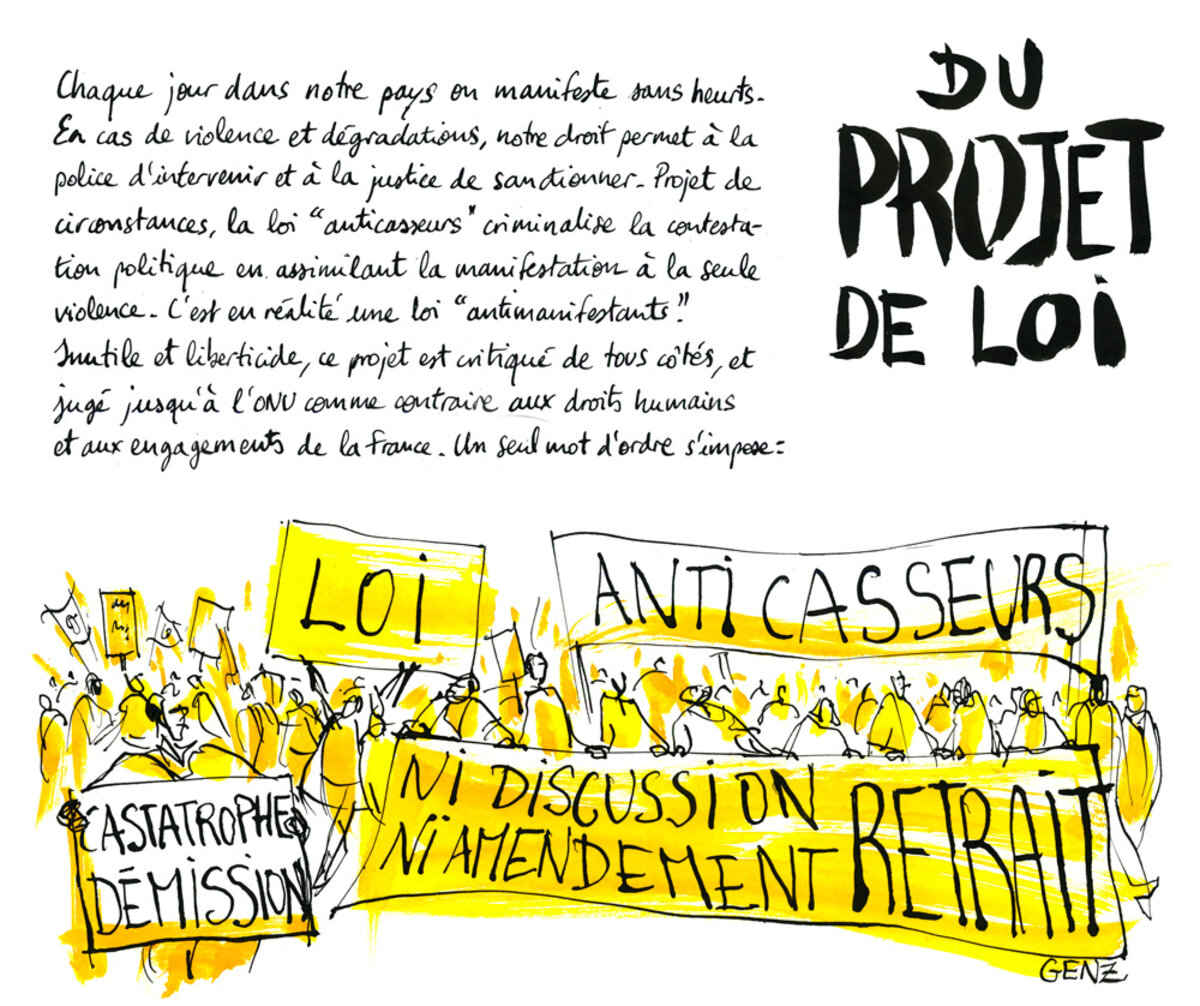 DU
PROJET
DE LOI
Chaque jour dans notre pays on manifeste sans heurts.
En cas de violence et dégradations, notre droit permet à la
police d'intervenir et à la justice de sanctionner. Projet de
circonstances, la loi "anticasseurs" criminalise la contesta-
tion politique en assimilant la manifestation à la seule
violence. C'est en réalité une loi "antimanifestants".
Inutile et liberticide, ce projet est critiqué de tous côtés, et
jugé jusqu'à l'ONU comme contraire aux droits humains
et aux engagements de la France. Un seul mot d'ordre s'impose :
LOI
ANTICASSEURS
NI DISCUSSION
NI AMENDEMENT
RETRAIT
CASTATROPHE
DÉMISSION
GENZ